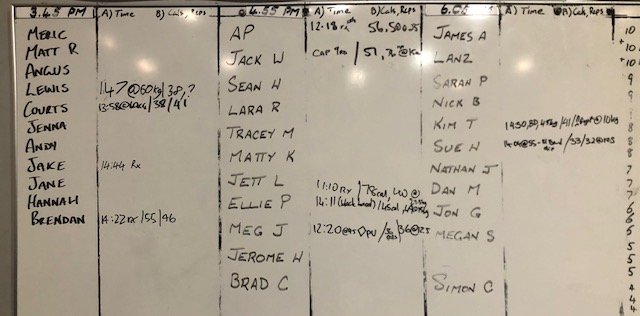 3.45 PM A) Time B) Cals, Reps
MERIC
MATT R
ANGUS
LEWIS 147 @ 60kg / 38, ?
COURTS 13:58 @ 60kg / 38 / 41
JENNA
ANDY
JAKE 14:44 Rx
JANE
HANNAH
BRENDAN 14:22 rx / 55 / 96
4.55 PM A) Time B) Cals, Reps
AP 12:18 rx 56, 50
JACK W CAP / 51,
SEAN W
LARA R
TRACEY M
MATTY K
JETT L 11:10 Rx /
ELLIE P 14:11
MEG J 12:20 / 36 @ 25
JEROME W
BRAD C
A) Time B) Cals, Reps
JAMES A
LANZ
SARAH P
NICK B
KIM T / 41 / @ 10kg
SUE W / 53 / 32 @
NATHAN J
DAN M
JON G
MEGAN S
SIMON C
10
+10
+10
9
9
8
8
8
7
7
7
6
6
5
5
4
4